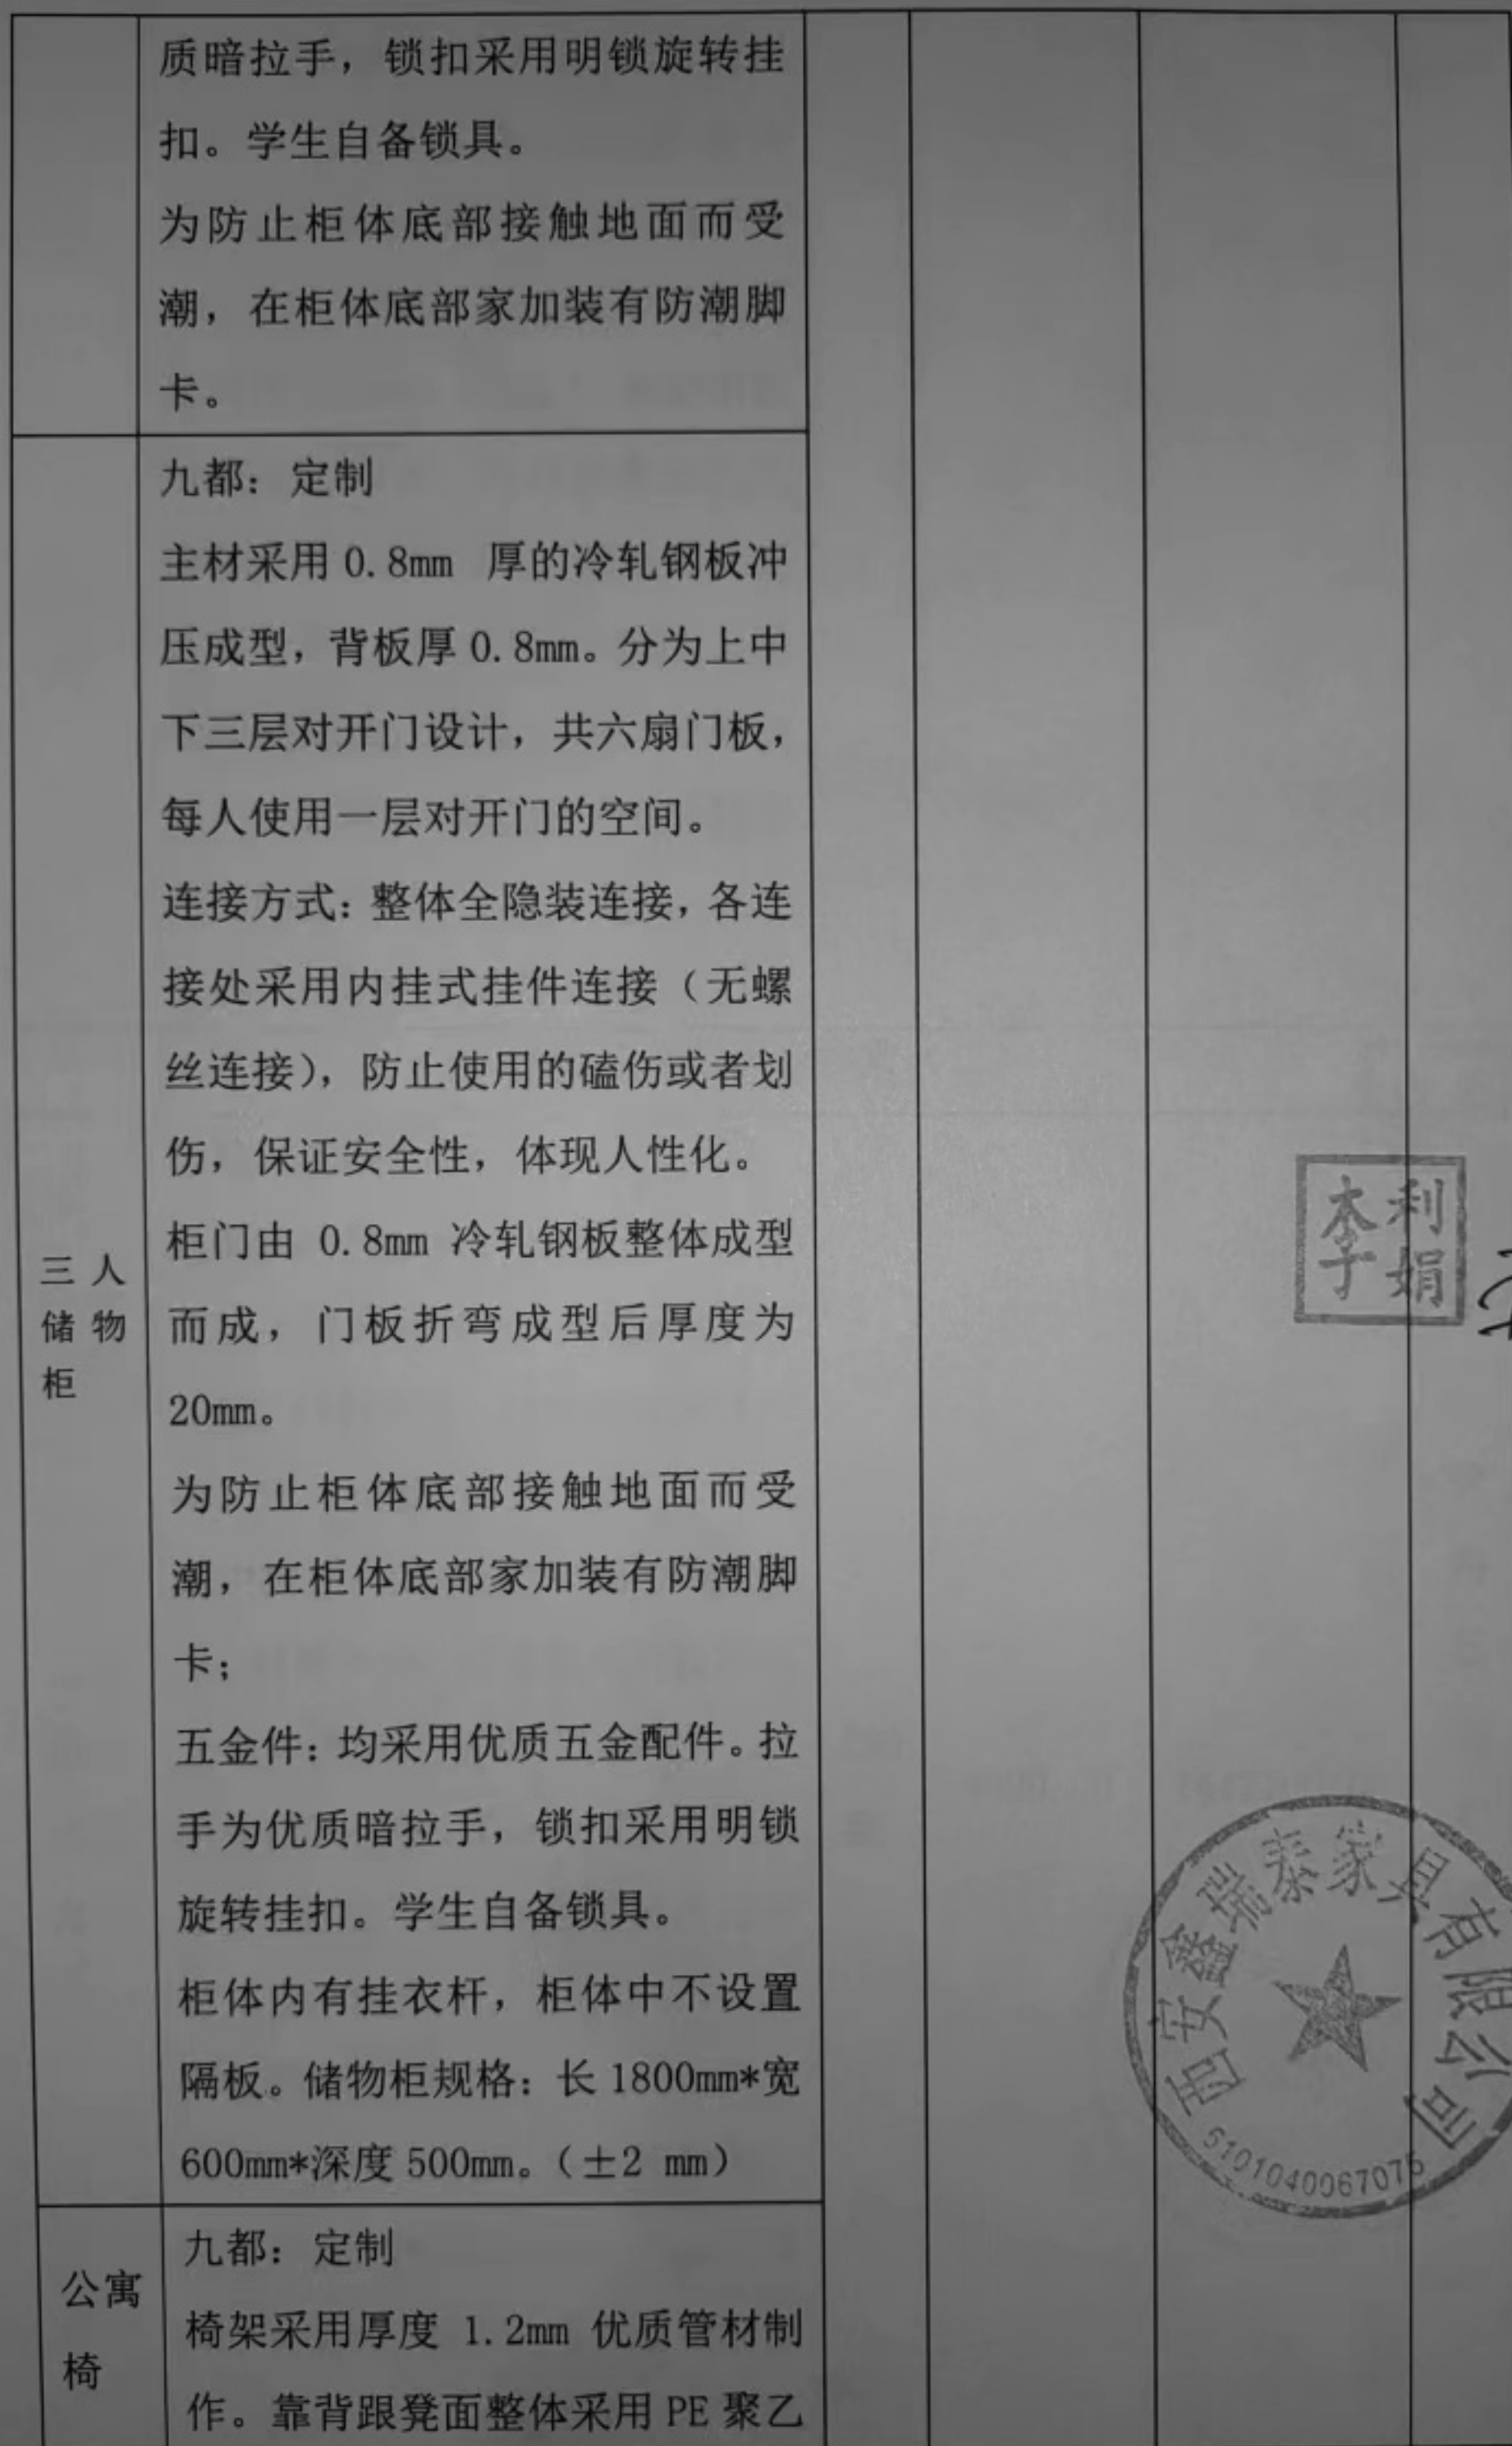 质暗拉手，锁扣采用明锁旋转挂
扣。学生自备锁具。
为防止柜体底部接触地面而受
潮，在柜体底部家加装有防潮脚
卡。
三人
储物
柜
九都：定制
主材采用0.8mm 厚的冷轧钢板冲
压成型，背板厚0.8mm。分为上中
下三层对开门设计，共六扇门板，
每人使用一层对开门的空间。
连接方式：整体全隐装连接，各连
接处采用内挂式挂件连接（无螺
丝连接），防止使用的磕伤或者划
伤，保证安全性，体现人性化。
柜门由 0.8mm 冷轧钢板整体成型
而成，门板折弯成型后厚度为
20mm。
为防止柜体底部接触地面而受
潮，在柜体底部家加装有防潮脚
卡；
五金件：均采用优质五金配件。拉
手为优质暗拉手，锁扣采用明锁
旋转挂扣。学生自备锁具。
柜体内有挂衣杆，柜体中不设置
隔板。储物柜规格：长1800mm*宽
600mm*深度500mm。（±2 mm）
公寓
椅
九都：定制
椅架采用厚度 1.2mm 优质管材制
作。靠背跟凳面整体采用PE聚乙
李利娟
西安鑫瑞泰家具有限公司
6101040067075